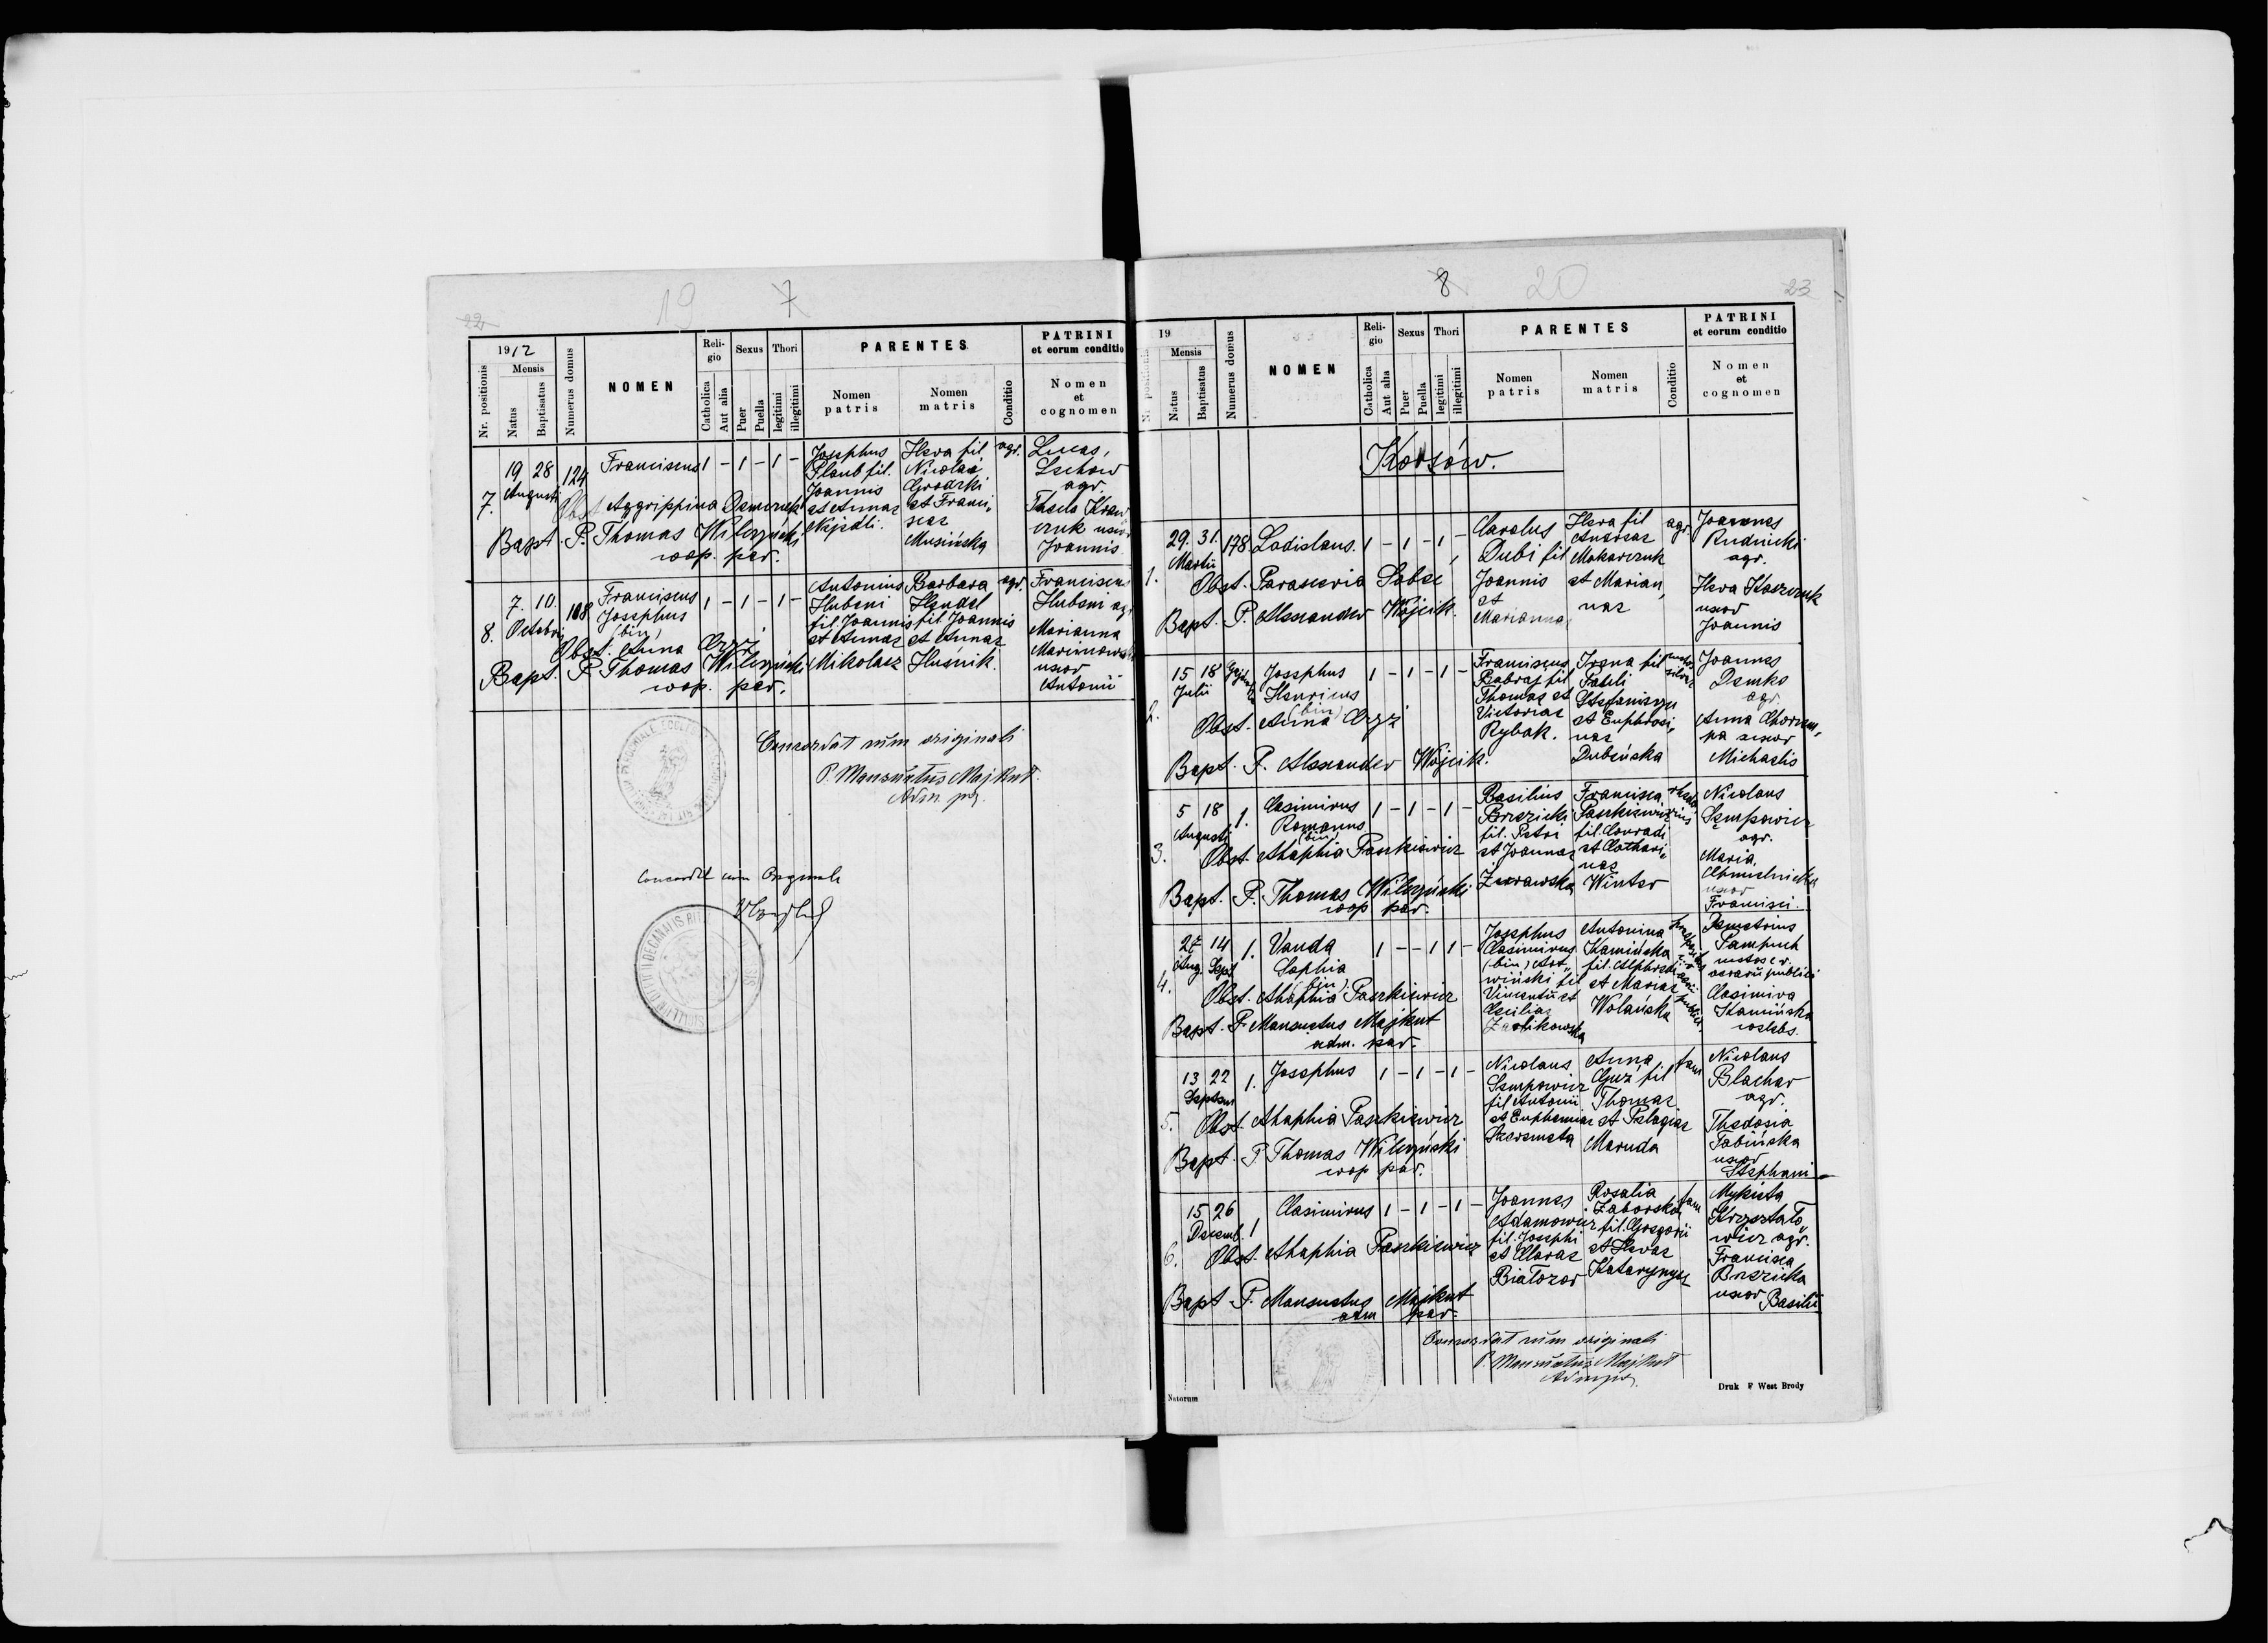 22 19 7
1912
Mensis
Nr. positionis
Natus
Baptisatus
Numerus domus
NOMEN
Reli-
gio
Catholica
Aut alia
Sexus
Puer
Puella
Thori
legitimi
illegitimi
PARENTES
Nomen
patris
Nomen
matris
Conditio
PATRINI
et eorum conditio
Nomen
et
cognomen
7.
19 28 124
Augusti
Franciscus 1 - 1 - 1 -
Obst. Aggrippina Demczuk
Bapt. P. Thomas Wilczyński
coop. par.
Josephus
Plaub fil.
Joannis
et Annae
Nejedli.
Heva fil.
Nicolai
Grodzki
et Franci„
scae
Musińska
agr.
Lucas,
Lechow
agr.
Thecla Kraw
czuk uxor
Joannis
8.
7. 10. 108
Octobris
Franciscus
Josephus
(bin)
1 - 1 - 1 -
Obst. Anna Czyż
Bapt. P. Thomas Wilczyński
coop. par.
Antonius
Hubeni
fil. Joannis
et Annae
Mikolasz
Barbara
Hendel
fil Joannis
et Annae
Huśnik.
agr.
Franciscus
Hubeni agr
Marianna
uxor
Antonii
Concordat cum originali
P. Mansuetus Majkut.
Adm. par.
Concordat cum Originali
8 20 23
19
Mensis
Nr. positionis
Natus
Baptisatus
Numerus domus
NOMEN
Reli-
gio
Catholica
Aut alia
Sexus
Puer
Puella
Thori
legitimi
illegitimi
PARENTES
Nomen
patris
Nomen
matris
Conditio
PATRINI
et eorum conditio
Nomen
et
cognomen
Korsów.
1.
29. 31. 178.
Martii
Ladislaus. 1 - 1 - 1 -
Obst. Parascevia Sobce
Bapt. P. Alexander Wójcik.
Carolus
Dubi fil
Joannis
et
Marianna
Heva fil
Andreae
Makarczuk
et Marian„
nae
agr.
Joannes
Rudnicki
agr.
Heva Kaszczuk
uxor
Joannis
2.
15 18
Julii
Josephus
Henricus
(bin)
1 - 1 - 1 -
Obst. Anna Czyż
Bapt. P. Alexander Wójcik.
Franciscus
Babraj fil
Thomae et
Victoriae
Rybak.
Irena fil
Fateli
Stefaniszyn
et Euphrosi„
nae
Dubińska
custos
silvae
Joannes
Demko
agr.
Anna
uxor
Michaelis
3.
5 18 1.
Augusti
Casimirus
Romanus
(bin)
1 - 1 - 1 -
Obst. Ahaphia Paszkiewicz
Bapt. P. Thomas Wilczyński
coop par.
Basilius
Brezicki
fil. Petri
et Joannae
Żurawska
Francisca
Paszkiewicz
fil. Conradi
et Cathari„
nae
Winter
Nicolaus
Sempowicz
agr.
Maria,
Chmielnicka
uxor
Francisci.
4.
27 14 1.
Aug. Sept
Vanda
Sophia
(bin)
1 - - 1 1 -
Obst. Ahaphia Paszkiewicz
Bapt. P. Mansuetus Majkut
adm. par.
Josephus
Casimirus
(bin) Art„
wiński fil
Vincentii et
Ceciliae
Zarlikowska
Antonina
Kamińska
fil. Alphredi
et Mariae
Wolańska
Demetrius
Pampuch
custos c. r.
aerarii publici
Casimira
Kamińska
coelebs.
5.
13 22 1.
Septem
Josephus 1 - 1 - 1 -
Obst. Ahaphia Paszkiewicz
Bapt. P Thomas Wilczyński
coop par.
Nicolaus
Sempowicz
fil Antonii
et Euphemiae
Szeremeta
Anna
Guz, fil
Thomae
et Pelagiae
Maruda
fam
Nicolaus
Blachar
agr.
Thedosia
Tabińska
uxor
Stephani
6.
15 26
Decemb. 1
Casimirus 1 - 1 - 1 -
Obst. Ahaphia Paszkiewicz
Bapt P. Mansuetus Majkut
adm par.
Joannes
Adamowicz
fil. Josephi
et Clarae
Białozor
Rosalia
Zaborska
fil. Gregorii
et Hevae
Katarynycz
fam
Mykieta
Krzyształo„
wicz agr.
Francisca
Brezicka
uxor Basilii
Concordat cum originali
P. Mansuetus Majkut
Adm par.
Natorum
Druk F West Brody